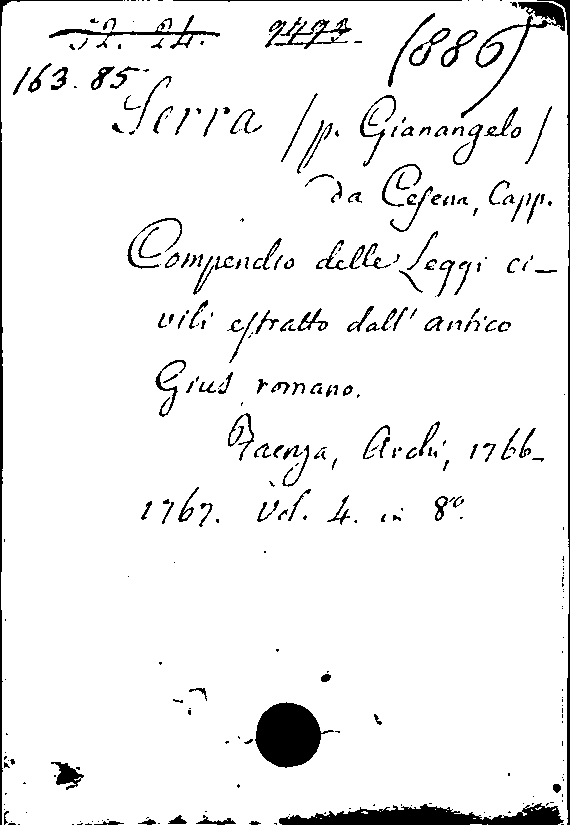 52. 24. 9793. (886)
163. 85
Serra /p. Gianangelo/
da Cesena, Capp.
Compendio delle Leggi ci-
vili estratto dall' antico
Gius romano.
Faenza, Archi, 1766-
1767. Vol. 4. in 8º.